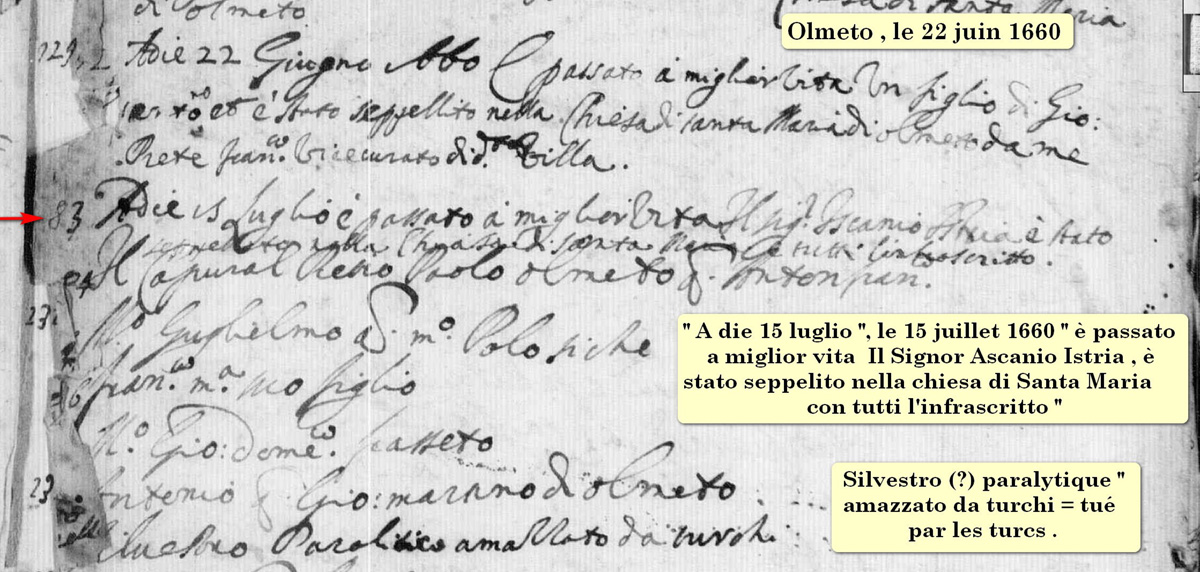 di Olmeto
di santa Maria
Olmeto , le 22 juin 1660
Adie 22 Giugno passato à miglior vita Un figlio di Gio:
et è stato seppellito nella Chiesa di santa Maria di olmeto da me
Prete fran.co Vicecurato di d.ta Villa.
83 Adie 15 Luglio è passato à miglior Vita Il sig.r Ascanio Istria è stato
seppellito nella Chiesa di santa Maria tutti l'infrascritto.
84 Il Capural Pietro Paolo olmeto q. Anton fran.
M.o Guglielmo q. m.o Polo
fran.co m.a suo figlio
M.o Gio: dome.co
23 Antonio q. Gio: martino di olmeto
Siluestro amassato da turchi
" A die 15 luglio ", le 15 juillet 1660 " è passato
a miglior vita Il Signor Ascanio Istria , è
stato seppelito nella chiesa di Santa Maria
con tutti l'infrascritto "
Silvestro (?) paralytique "
amazzato da turchi = tué
par les turcs .